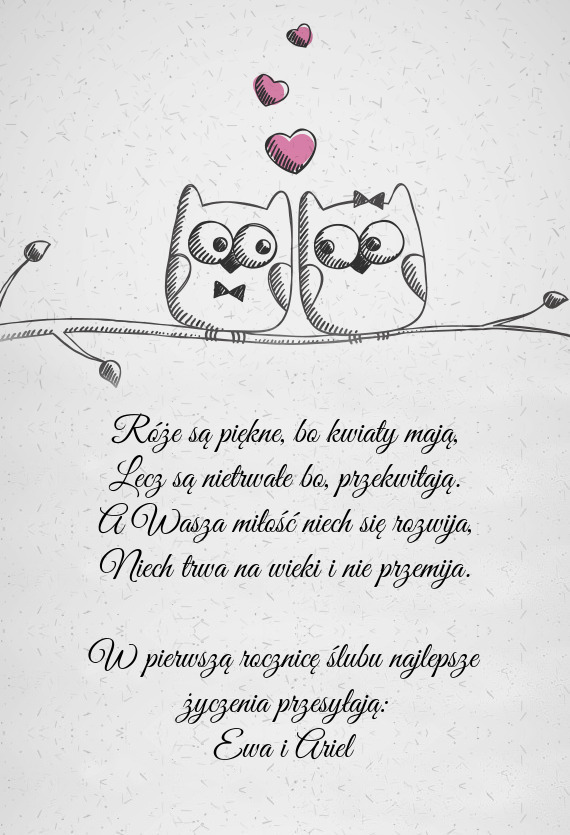 Róże są piękne, bo kwiaty mają,
Lecz są nietrwałe bo, przekwitają.
A Wasza miłość niech się rozwija,
Niech trwa na wieki i nie przemija.
W pierwszą rocznicę ślubu najlepsze
życzenia przesyłają:
Ewa i Ariel